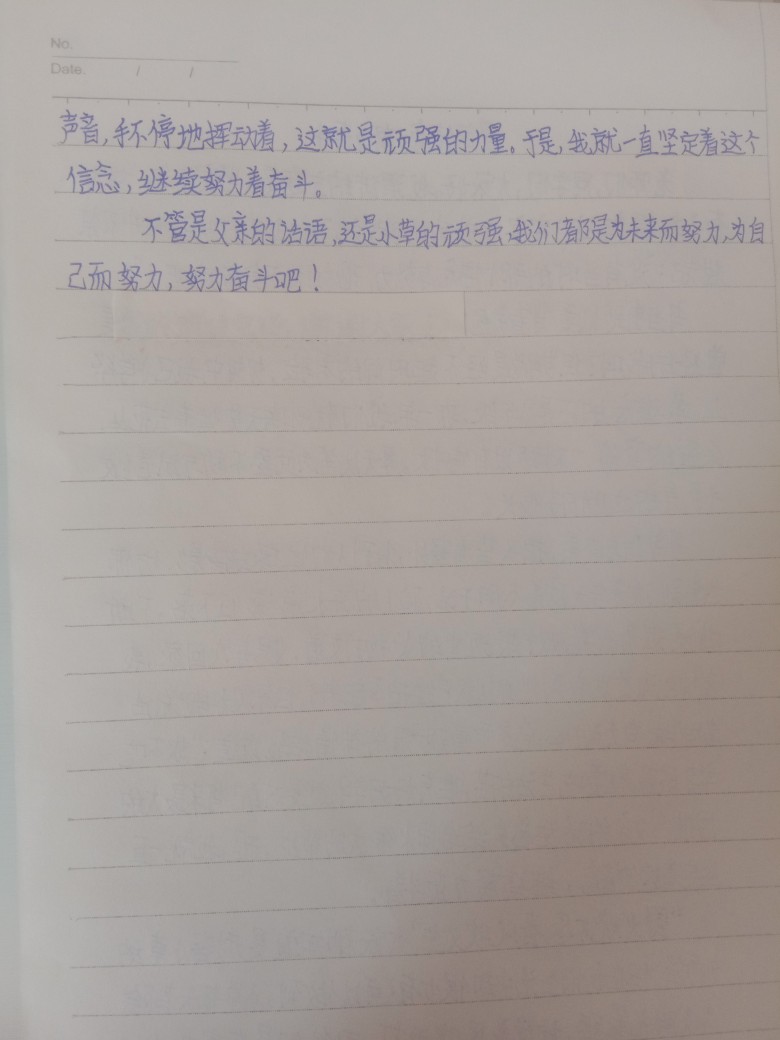 No.
Date. / /
声音,手不停地挥动着,这就是顽强的力量。于是,我就一直坚定着这个
信念,继续努力着奋斗。
不管是父亲的话语,还是小草的顽强,我们都是为未来而努力,为自
己而努力,努力奋斗吧!